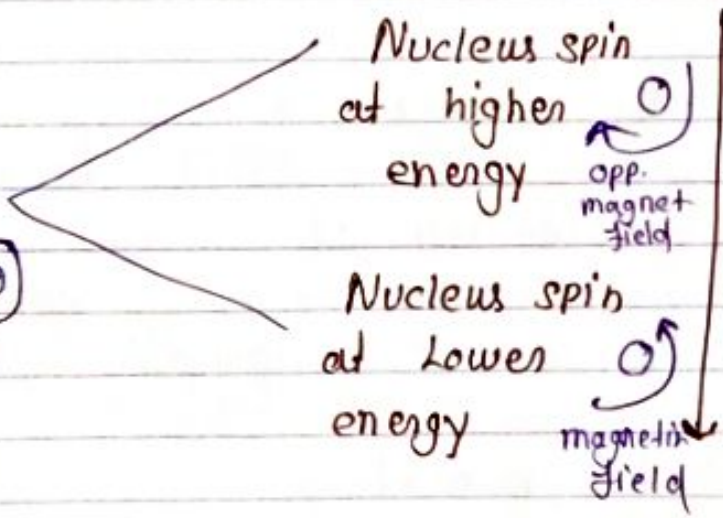 Nucleus spin
at higher
energy
opp.
magnet
field
Nucleus spin
at Lower
energy
magnetic
field